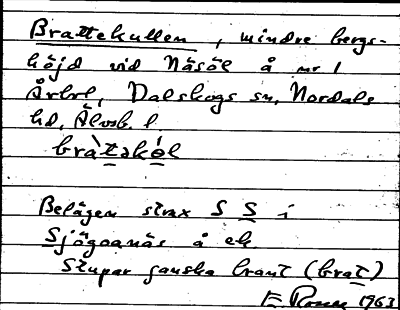 Brattekullen, mindre bergs-
höjd vid Näsöl å nr 1
Ärbol, Dalskogs sn, Nordals
hd, Älvsb. l
bra`tskö́l
Belägen strax S S i
Sjögeanäs å ek.
Stupar ganska brant (brat)
1963